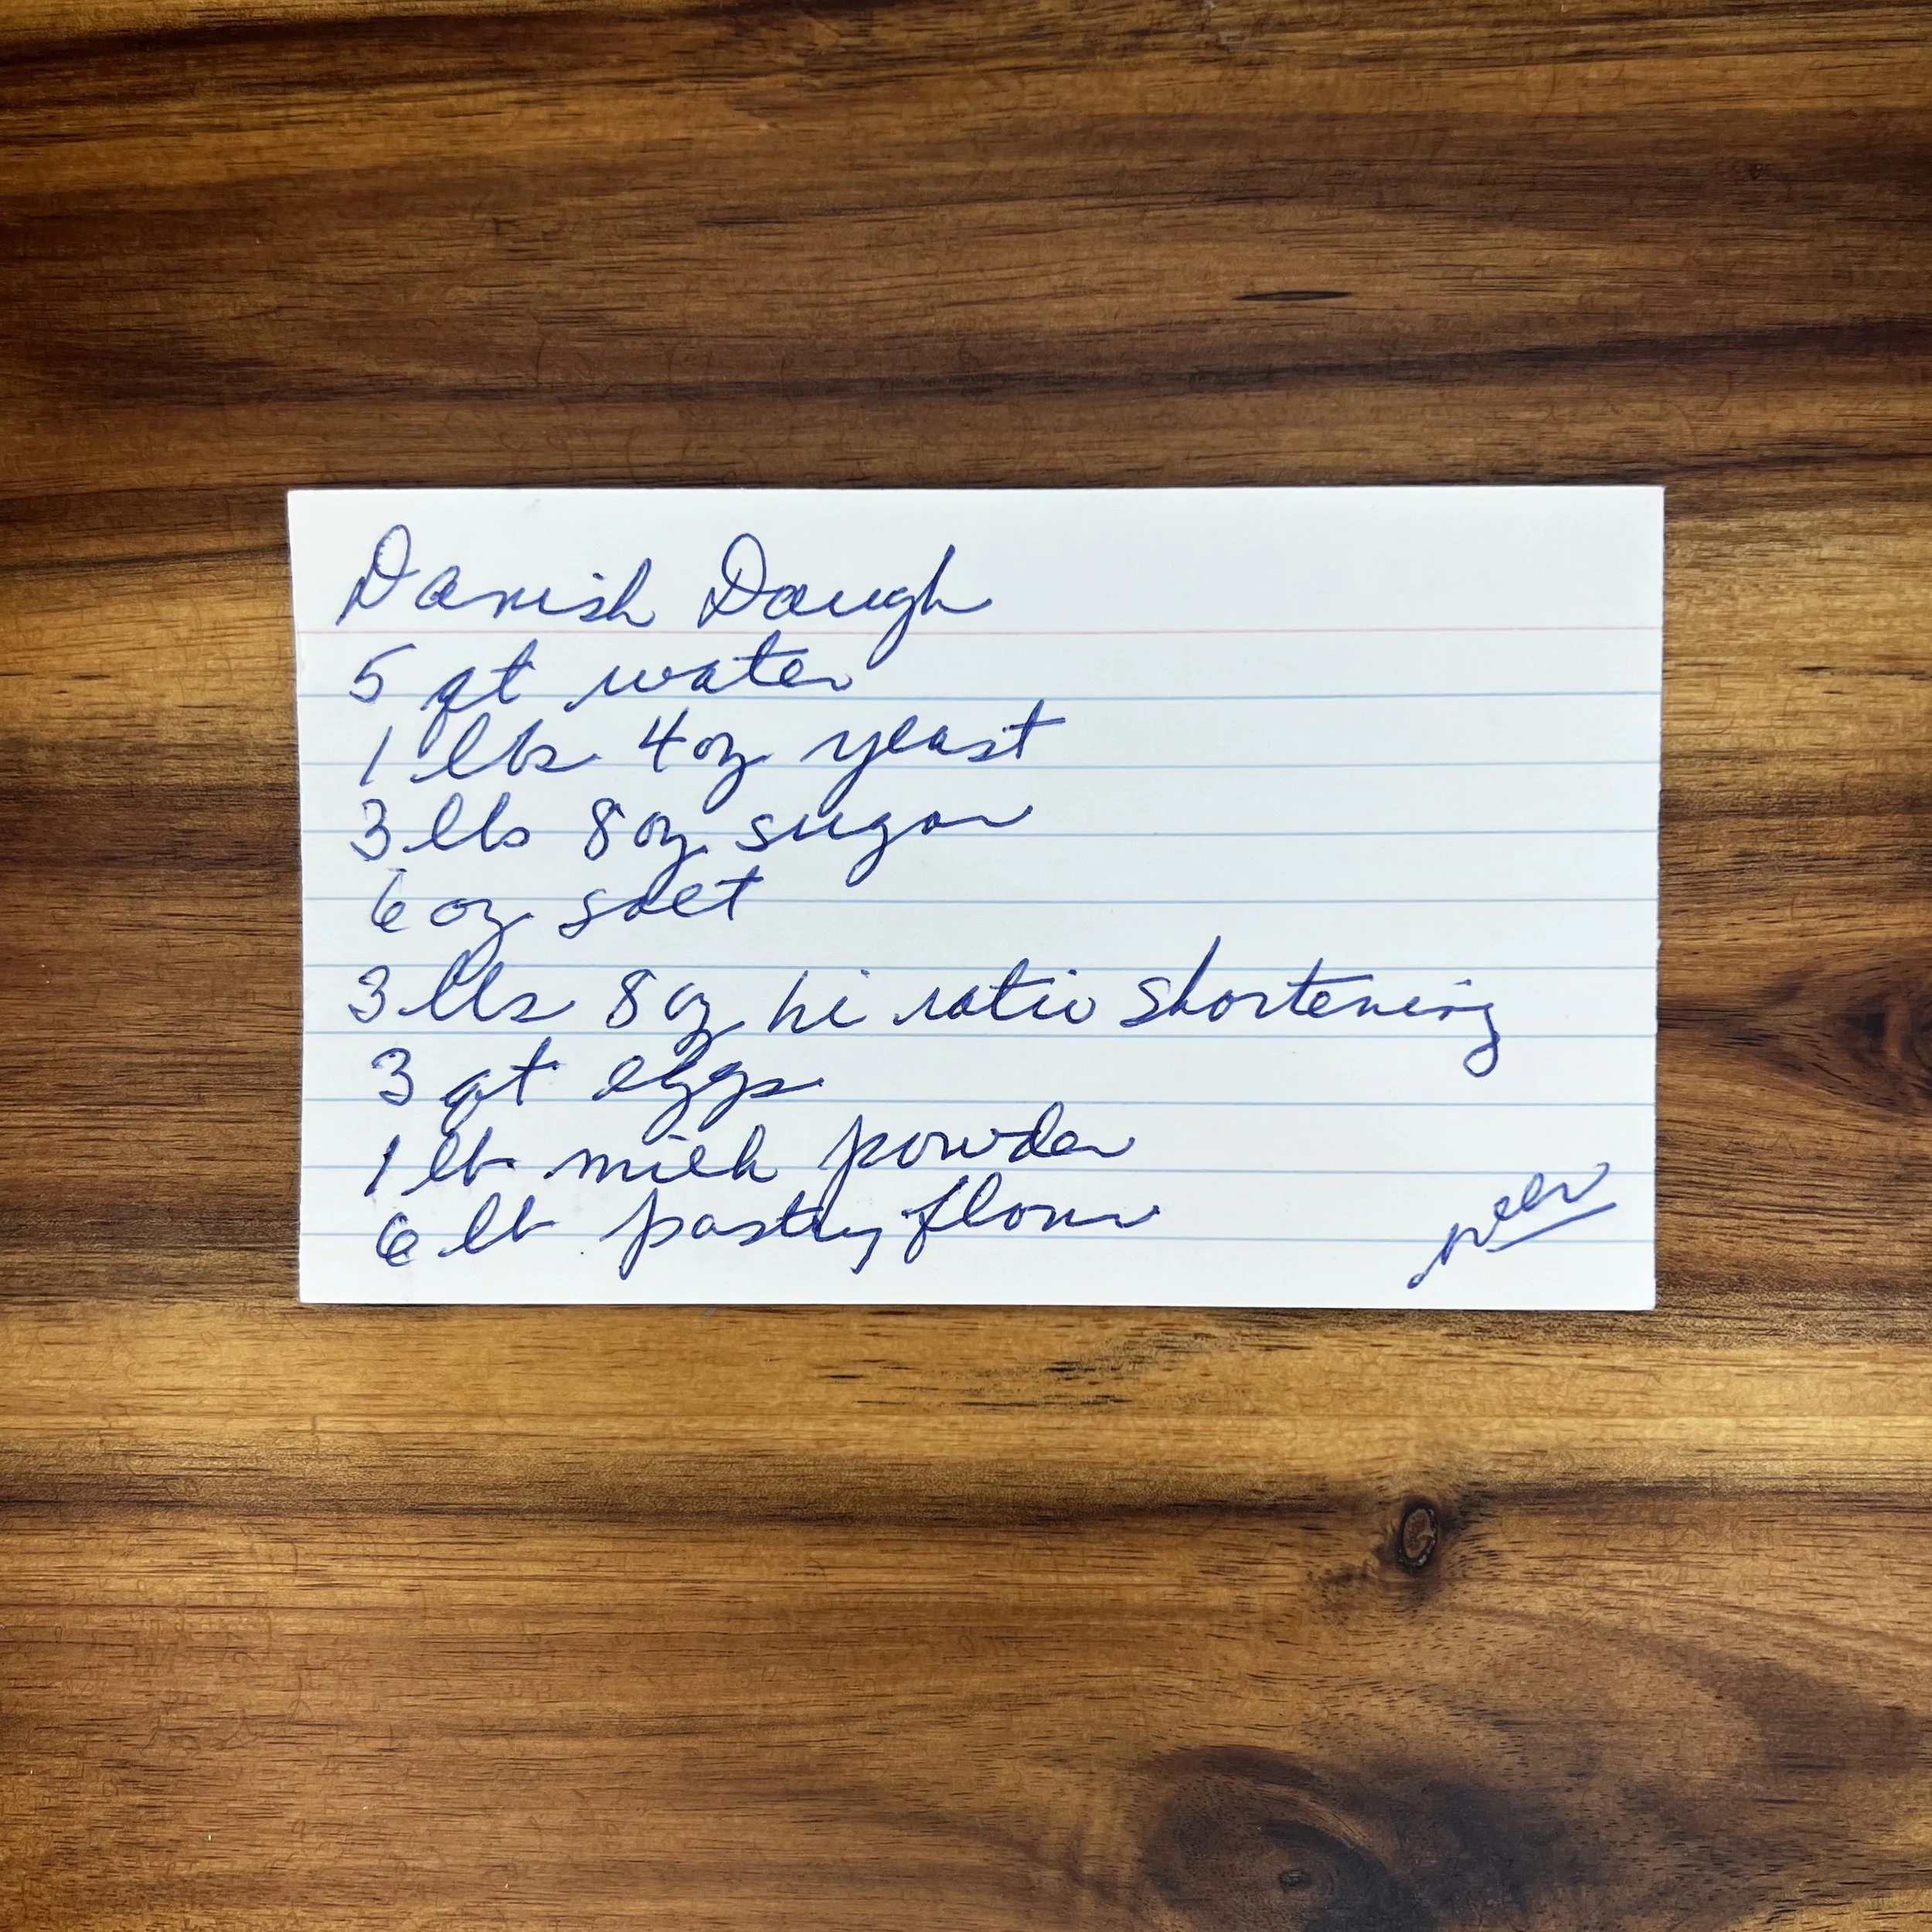 Danish Dough
5 qt water
1 lbs 4 oz yeast
3 lbs 8 oz sugar
6 oz salt
3 lbs 8 oz hi ratio shortening
3 qt eggs
1 lb milk powder
6 lb pastry flour
over